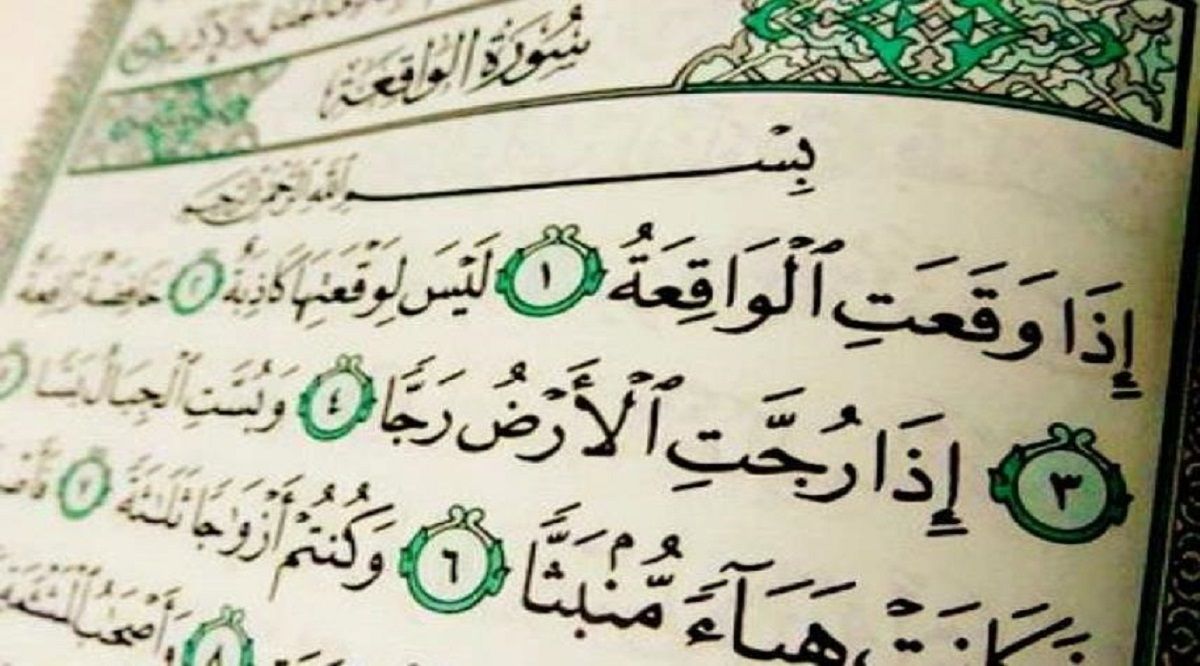 سُورَةُ الوَاقِعَةِ
بِسْمِ اللَّهِ الرَّحْمَٰنِ الرَّحِيمِ
إِذَا وَقَعَتِ ٱلْوَاقِعَةُ ١ لَيْسَ لِوَقْعَتِهَا كَاذِبَةٌ ٢ خَافِضَةٌ رَّافِعَةٌ
٣ إِذَا رُجَّتِ ٱلْأَرْضُ رَجًّا ٤ وَبُسَّتِ ٱلْجِبَالُ بَسًّا ٥
فَكَانَتْ هَبَآءً مُّنۢبَثًّا ٦ وَكُنتُمْ أَزْوَٰجًا ثَلَٰثَةً ٧
٨ وَأَصْحَٰبُ ٱلْمَشْـَٔمَةِ